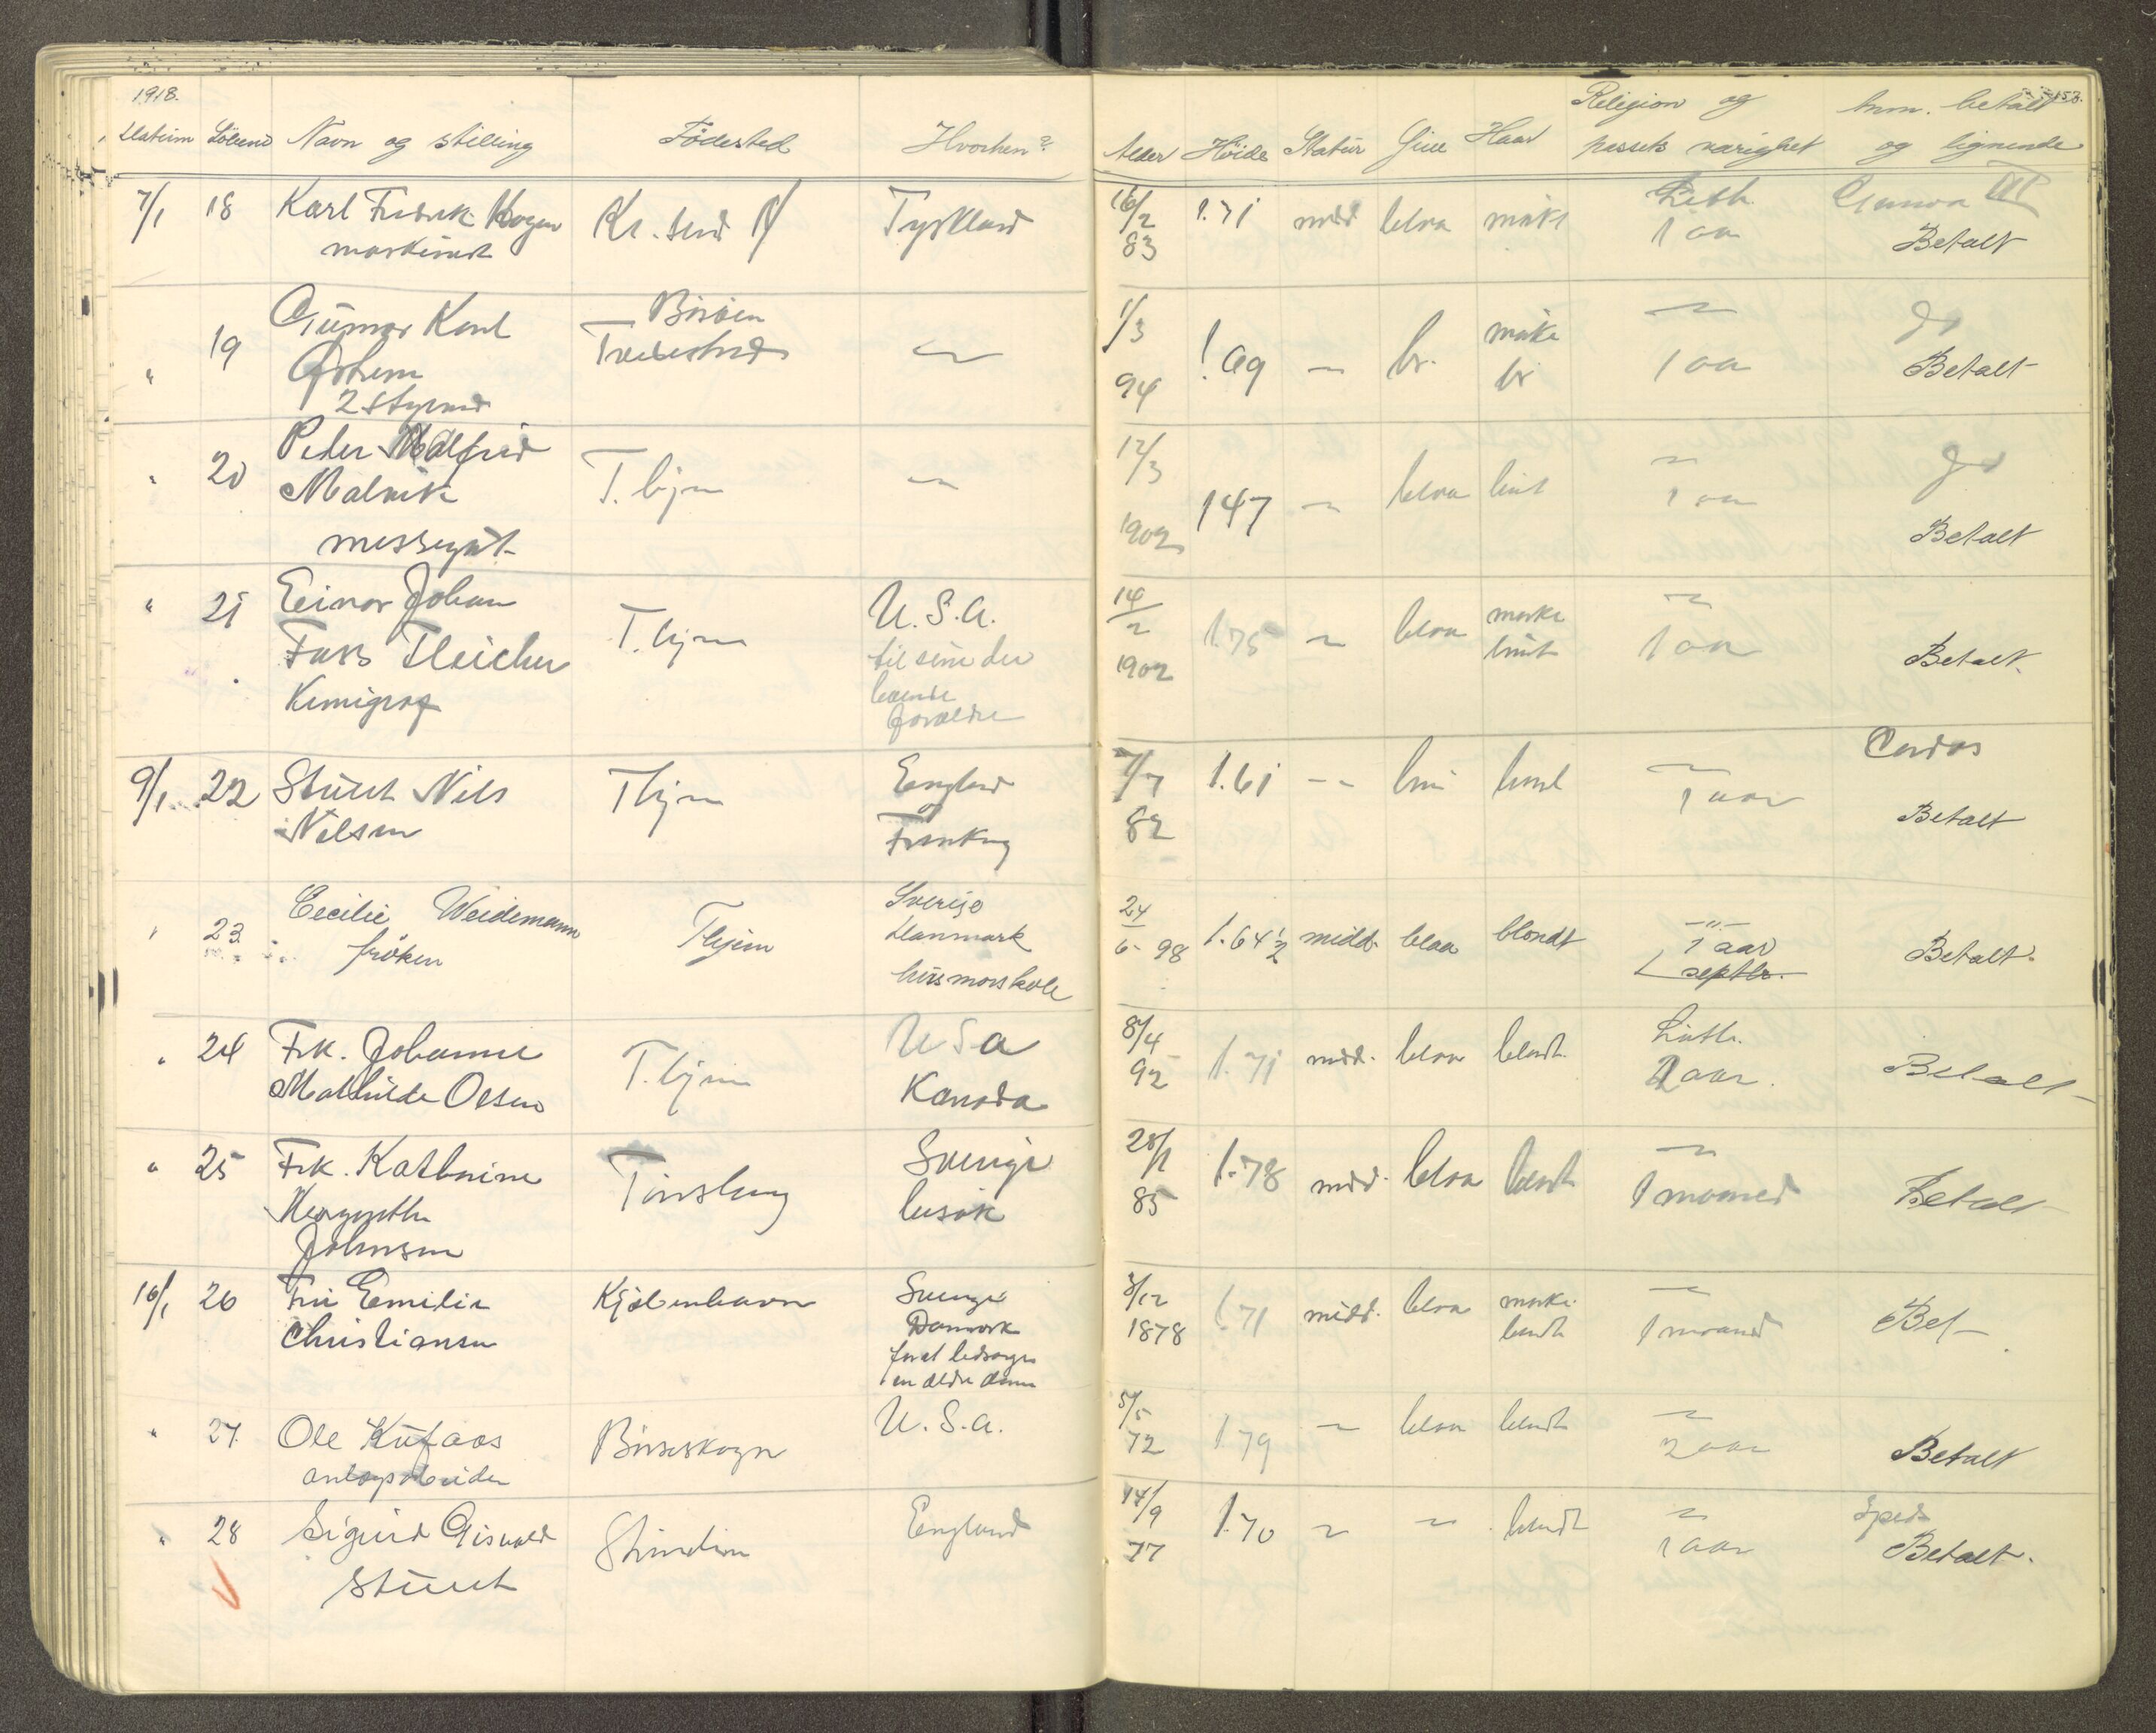 1918.
Datum Löbenr Navn og stilling Födested Hvorhen?
7/1 18 Karl Fredrik Hogen Kr. sund N Tyskland
maskinist
" 19 Gunnar Karl Börsen
Tvedestrand
2 styrmd
" 20 Peder T.hjm
Malvik
messegut
" 21 Einar Johan T.hjm U.S.A.
Foss Fleicher til sine der
Kemigraf boende
forældre
9/1 22 Stuert Nils Thjm England
Nilsen og
Frankrig
" 23 Cecilie Weidemann Thjem Sverige
fröken Danmark
husmorskole
" 24 Frk. Johanne T.hjm U S A
Mathilde Olsen Kanada
" 25 Frk. Kathrine Tönsberg Sverige
Margrethe besök
Johnsen
10/1 26 Fru Emilie Kjöbenhavn Sverige
Christiansen Danmark
for at ledsage
en ældre dame
" 27 Ole Kufaas Börseskogn U.S.A.
anlægsarbeider
" 28 Sigurd Trondhjem England
Stuert
153.
Religion og Anm. betalt
Alder Höide Statur Öine Haar passets varighet og lignende
16/2 83 1.71 midd blaa mörkt Luth. 1 aar Gunvor VII
Betalt
1/3 94 1.69 — br. mörke br — 1 aar Do
Betalt
12/3 1902 147 — blaa lint — 1 aar Do
Betalt
14/2 1902 1.75 — blaa mörke lint — 1 aar Betalt.
7/7 82 1.61 — brun blond — 1 aar Cordos
Betalt
24/6 98 1.64½ midd. blaa blondt —"— 1 aar septbr. Betalt.
8/4 92 1.71 midd. blaa blondt Luth. 2 aar. Betalt
28/1 85 1.78 midd. blaa blondt — 1 maaned Betalt
3/12 1878 1.71 midd. blaa mörke blondt — 1 maaned Bet
5/5 72 1.79 — blaa blondt — 2 aar Betalt
14/9 77 1.70 — — blondt — 1 aar Sped
Betalt.